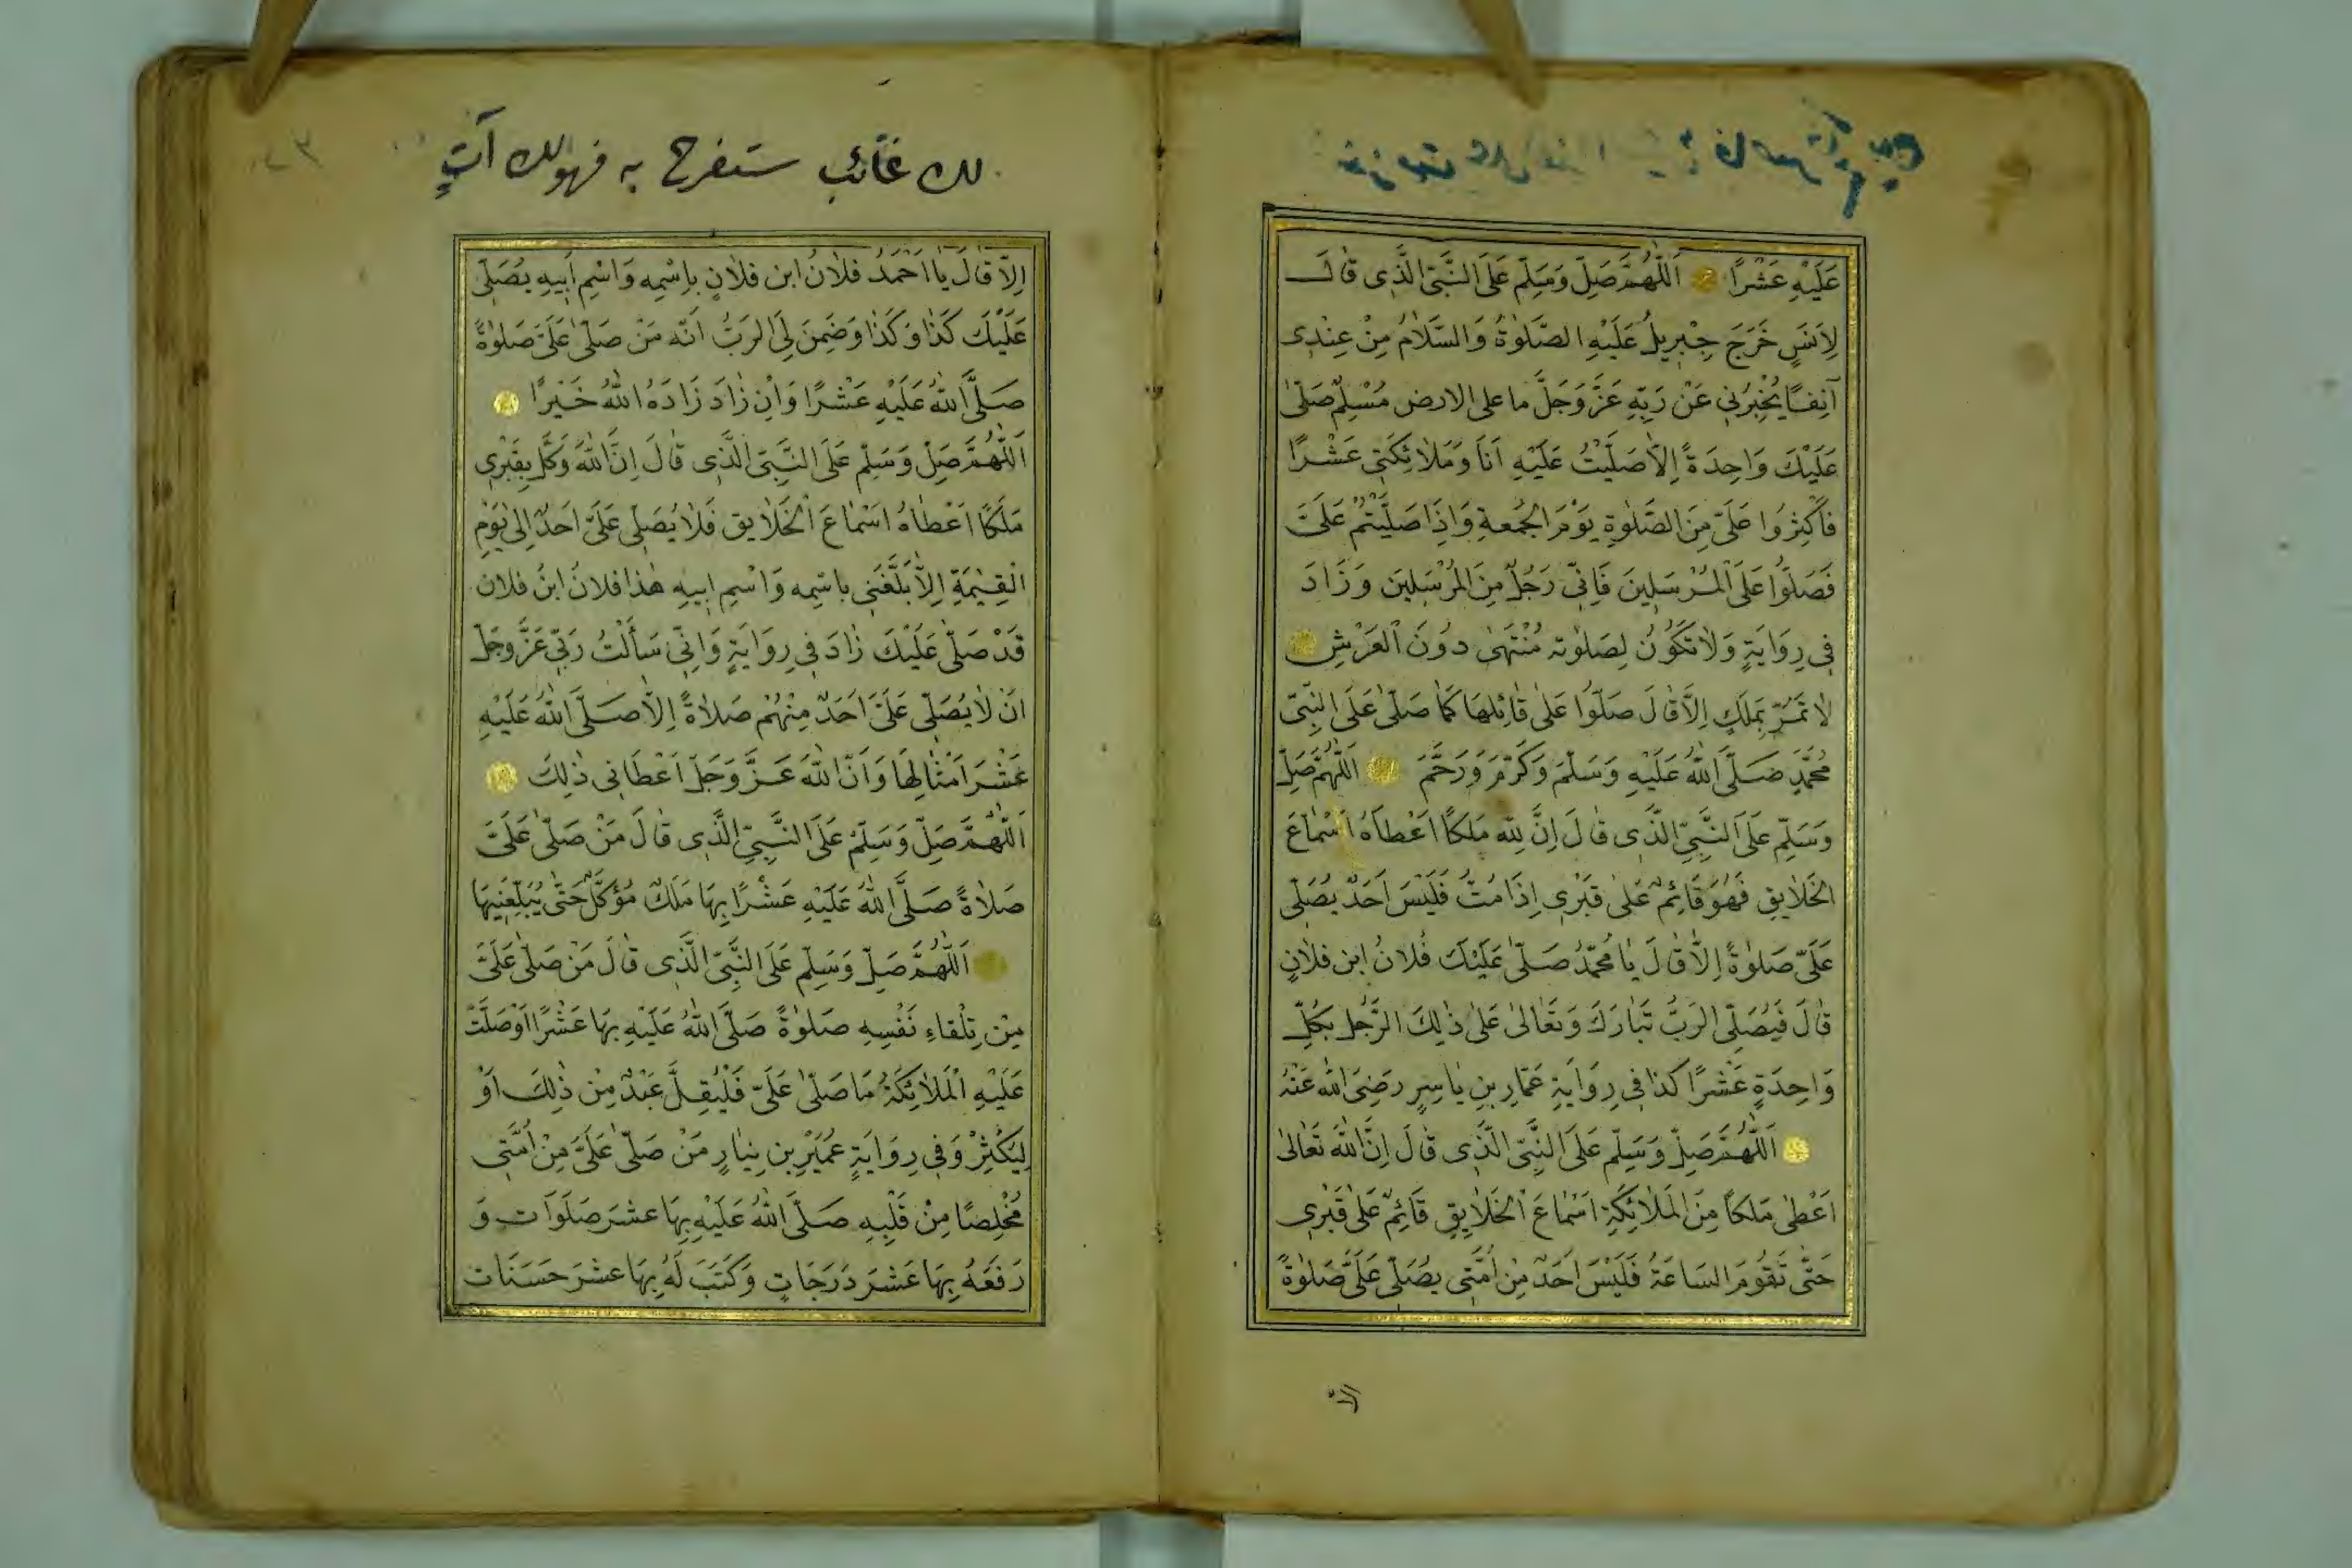 عَلَيْهِ عَشْرًا اَللّٰهُمَّ صَلِّ وَسَلِّمْ عَلَى النَّبِيِّ الَّذِى قَالَ
لِاَنَسٍ خَرَجَ جِبْرِيلُ عَلَيْهِ الصَّلٰوةُ وَالسَّلَامُ مِنْ عِنْدِى
آنِفًا يُخْبِرُنِى عَنْ رَبِّهِ عَزَّ وَجَلَّ ما على الارض مُسْلِمٌ صَلّٰى
عَلَيْكَ وَاحِدَةً اِلَّا صَلَّيْتُ عَلَيْهِ اَنَا وَمَلَائِكَتِى عَشْرًا
فَاَكْثِرُوا عَلَىَّ مِنَ الصَّلٰوةِ يَوْمَ الْجُمعةِ وَاِذَا صَلَّيْتُمْ عَلَىَّ
فَصَلُّوا عَلَى الْمُرْسَلِينَ فَاِنِّى رَجُلٌ مِنَ الْمُرْسَلِينَ وَزَادَ
فِى رِوَايَةٍ وَلَا تَكُونُ لِصَلٰوته مُنْتَهٰى دُونَ الْعَرْشِ
لَا تَمُرُّ بِمَلَكٍ اِلَّا قَالَ صَلُّوا عَلٰى قَائِلِهَا كَمَا صَلّٰى عَلَى النَّبِىّ
مُحَمَّدٍ صَلَّى اللّٰهُ عَلَيْهِ وَسَلَّمَ وَكَرَّمَ وَرَحَّمَ اَللّٰهُمَّ صَلِّ
وَسَلِّمْ عَلَى النَّبِيِّ الَّذِى قَالَ اِنَّ لِلّٰهِ مَلَكًا اَعْطَاهُ اَسْمَاعَ
الْخَلَايِقِ فَهُوَ قَائِمٌ عَلٰى قَبْرِى اِذَا مُتُّ فَلَيْسَ اَحَدٌ يُصَلِّى
عَلَىَّ صَلٰوةً اِلَّا قَالَ يَا مُحَمَّدُ صَلّٰى عَلَيْكَ فُلَانُ ابن فلَانٍ
قَالَ فَيُصَلِّى الرَّبُّ تَبَارَكَ وَتَعَالٰى عَلٰى ذٰلِكَ الرَّجُلِ بِكُلِّ
وَاحِدَةٍ عَشْرًا كذا فِى رِوَايَةِ عَمَّارِ بنِ يَاسِرٍ رَضِىَ اللّٰهُ عَنْهُ
اَللّٰهُمَّ صَلِّ وَسَلِّمْ عَلَى النَّبِيِّ الَّذِى قَالَ اِنَّ اللّٰهَ تَعَالٰى
اَعْطٰى مَلَكًا مِنَ الْمَلَائِكَةِ اَسْمَاعَ الْخَلَايِقِ قَائِمٌ عَلٰى قَبْرِى
حَتّٰى تَقُومَ السَاعَةُ فَلَيْسَ اَحَدٌ مِنْ اُمَّتِى يُصَلِّى عَلَىَّ صَلٰوةً
الا
لك غائب ستفرح به فهو لك آتٍ
اِلَّا قَالَ يَا اَحْمَدُ فلَانُ ابن فلَانٍ بِاسْمِه وَاسْمِ اَبِيهِ يُصَلِّى
عَلَيْكَ كَذَا وَكَذَا وَضَمِنَ لِىَ الرَبُّ اَنّه مَنْ صَلّٰى عَلَىَّ صَلٰوةً
صَلَّى اللّٰهُ عَلَيْهِ عَشْرًا وَاِنْ زَادَ زَادَهُ اللّٰهُ خَيْرًا
اَللّٰهُمَّ صَلِّ وَسَلِّمْ عَلَى النَّبِيِّ الَّذِى قَالَ اِنَّ اللّٰهَ وَكَّلَ بِقَبْرِى
مَلَكًا اَعْطَاهُ اَسْمَاعَ الْخَلَايق فَلَا يُصَلِّى عَلَىَّ اَحَدٌ اِلٰى يَوْمِ
الْقِيٰمَةِ اِلَّا بَلَّغَنِى باسْمِه وَاسْمِ ابِيهِ هٰذا فلانُ ابنُ فلان
قَدْ صَلّٰى عَلَيْكَ زَادَ فِى رِوَايَةٍ وَاِنِّى سَأَلْتُ رَبِّى عَزَّ وجَلّ
اَنْ لَا يُصَلِّى عَلَىَّ اَحَدٌ مِنْهُمْ صَلَاةً اِلَّا صَلَّى اللّٰهُ عَلَيْهِ
عَشْرَ اَمْثَالِهَا وَاَنَّ اللّٰهَ عَزَّ وَجَلَّ اَعْطَانِى ذٰلِكَ
اَللّٰهُمَّ صَلِّ وَسَلِّمْ عَلَى النَّبِيِّ الَّذِى قَالَ مَنْ صَلّٰى عَلَىَّ
صَلَاةً صَلَّى اللّٰهُ عَلَيْهِ عَشْرًا بِهَا مَلَكٌ مُوَكَّلٌ حَتّٰى يُبَلِّغَنِيهَا
اَللّٰهُمَّ صَلِّ وَسَلِّمْ عَلَى النَّبِيِّ الَّذِى قَالَ مَنْ صَلّٰى عَلَىَّ
مِنْ تِلْقَاءِ نَفْسِهِ صَلٰوةً صَلَّى اللّٰهُ عَلَيْهِ بِهَا عَشْرًا اَوْ صَلَّتْ
عَلَيْهِ الْمَلَائِكَةُ مَا صَلّٰى عَلَىَّ فَلْيُقِلَّ عَبْدٌ مِنْ ذٰلِكَ اَوْ
لِيُكْثِرْ وَفِى رِوَايَةٍ عُمَيْرِ بن نِيَارٍ مَنْ صَلّٰى عَلَىَّ مِنْ اُمَّتِى
مُخْلِصًا مِنْ قَلْبِهِ صَلَّى اللّٰهُ عَلَيْهِ بِهَا عشرَ صَلَوَات وَ
رَفَعَهُ بِهَا عَشْرَ دَرَجَاتٍ وَكَتَبَ لَهُ بِهَا عشرَ حَسَنَات